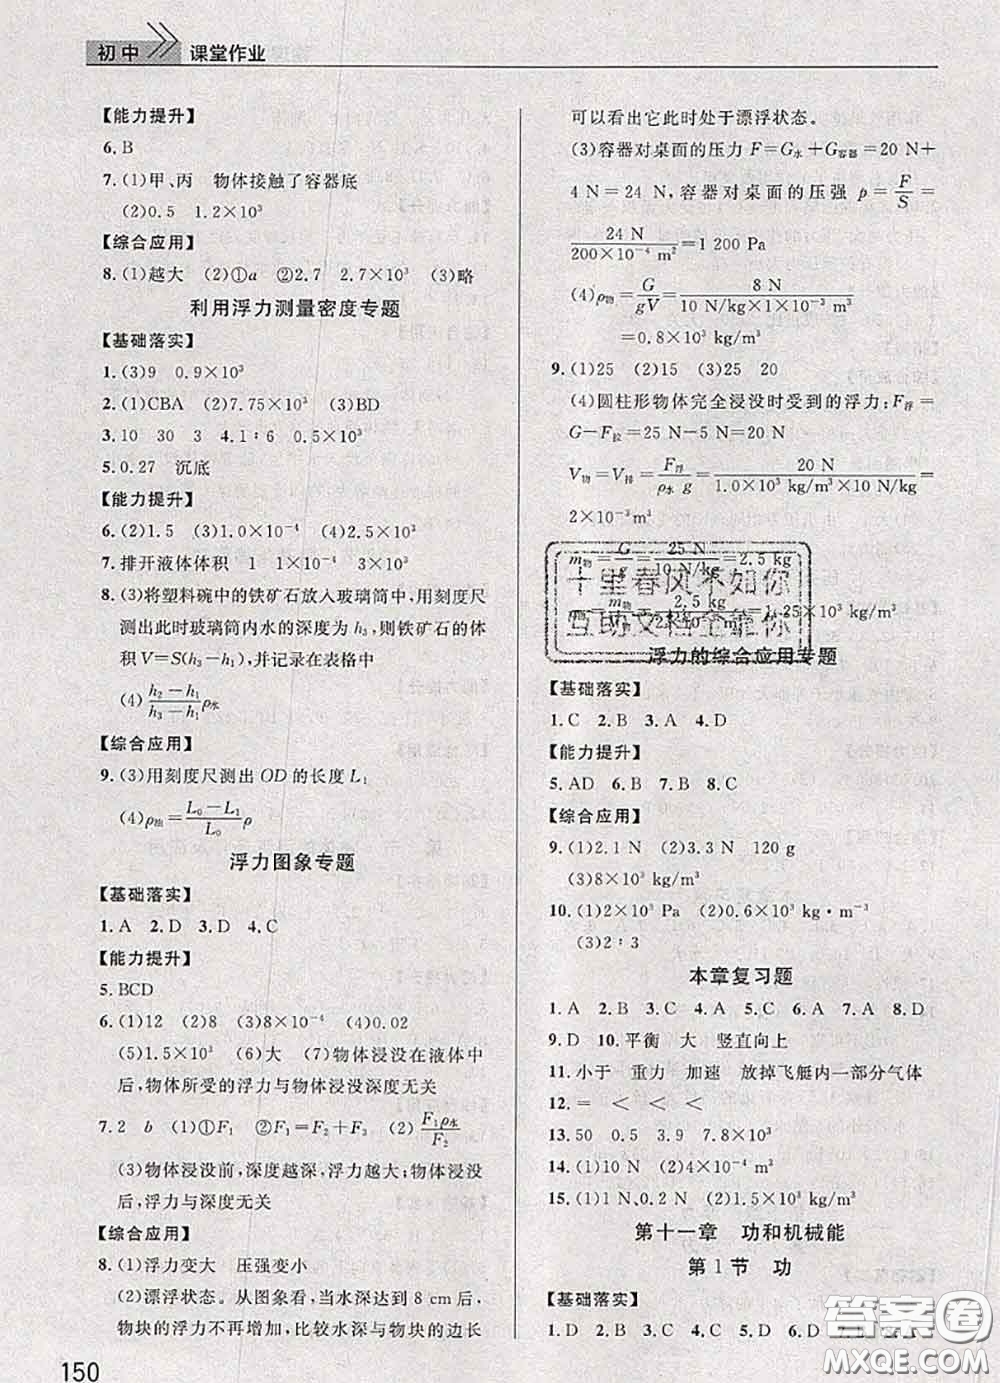 初中
课堂作业
【能力提升】
6. B
7. (1)甲、丙 物体接触了容器底
(2)0.5 1.2×10³
【综合应用】
8. (1)越大 (2)①a ②2.7 2.7×10³ (3)略
利用浮力测量密度专题
【基础落实】
1. (3)9 0.9×10³
2. (1)CBA (2)7.75×10³ (3)BD
3. 10 30 3 4. 1∶6 0.5×10³
5. 0.27 沉底
【能力提升】
6. (2)1.5 (3)1.0×10⁻⁴ (4)2.5×10³
7. 排开液体体积 1 1×10⁻⁴ 3×10³
8. (3)将塑料碗中的铁矿石放入玻璃筒中,用刻度尺
测出此时玻璃筒内水的深度为 h₃,则铁矿石的体
积 V=S(h₃-h₁),并记录在表格中
(4) (h₂-h₁)/(h₃-h₁) ρ水
【综合应用】
9. (3)用刻度尺测出 OD 的长度 L₁
(4)ρ物=(L₀-L₁)/L₀ ρ
浮力图象专题
【基础落实】
1. A 2. D 3. D 4. C
【能力提升】
5. BCD
6. (1)12 (2)8 (3)8×10⁻⁴ (4)0.02
(5)1.5×10³ (6)大 (7)物体浸没在液体中
后,物体所受的浮力与物体浸没深度无关
7. 2 b (1)①F₁ ②F₁=F₂+F₃ (2) F₁ρ水/F₂
(3)物体浸没前,深度越深,浮力越大;物体浸没
后,浮力与深度无关
【综合应用】
8. (1)浮力变大 压强变小
(2)漂浮状态。从图象看,当水深达到 8 cm 后,
物块的浮力不再增加,比较水深与物块的边长
150
可以看出它此时处于漂浮状态。
(3)容器对桌面的压力 F=G水+G容器=20 N+
4 N=24 N,容器对桌面的压强 p=F/S=
24 N/(200×10⁻⁴ m²)=1 200 Pa
(4)ρ物=G/gV=8 N/(10 N/kg×1×10⁻³ m³)
=0.8×10³ kg/m³
9. (1)25 (2)15 (3)25 20
(4)圆柱形物体完全浸没时受到的浮力:F浮=
G-F拉=25 N-5 N=20 N
V物=V排=F浮/(ρ水 g)=20 N/(1.0×10³ kg/m³×10 N/kg)=
2×10⁻³ m³
m物=G/g=25 N/(10 N/kg)=2.5 kg
=1.25×10³ kg/m³
十里春风不如你
互助文档全靠你
浮力的综合应用专题
【基础落实】
1. C 2. B 3. A 4. D
【能力提升】
5. AD 6. B 7. B 8. C
【综合应用】
9. (1)2.1 N (2)3.3 N 120 g
(3)8×10³ kg/m³
10. (1)2×10³ Pa (2)0.6×10³ kg·m⁻³
(3)2∶3
本章复习题
1. A 2. B 3. C 4. A 5. C 6. A 7. A 8. D
9. D 10. 平衡 大 竖直向上
11. 小于 重力 加速 放掉飞艇内一部分气体
12. = < < <
13. 50 0.5 3.9 7.8×10³
14. (1)10 N (2)4×10³ kg/m³
15. (1)1 N、0.2 N (2)5×10³ kg/m³
第十一章 功和机械能
第 1 节 功
【基础落实】
1. D 2. D 3. D 4. B 5. D
答案圈
MXQE.COM